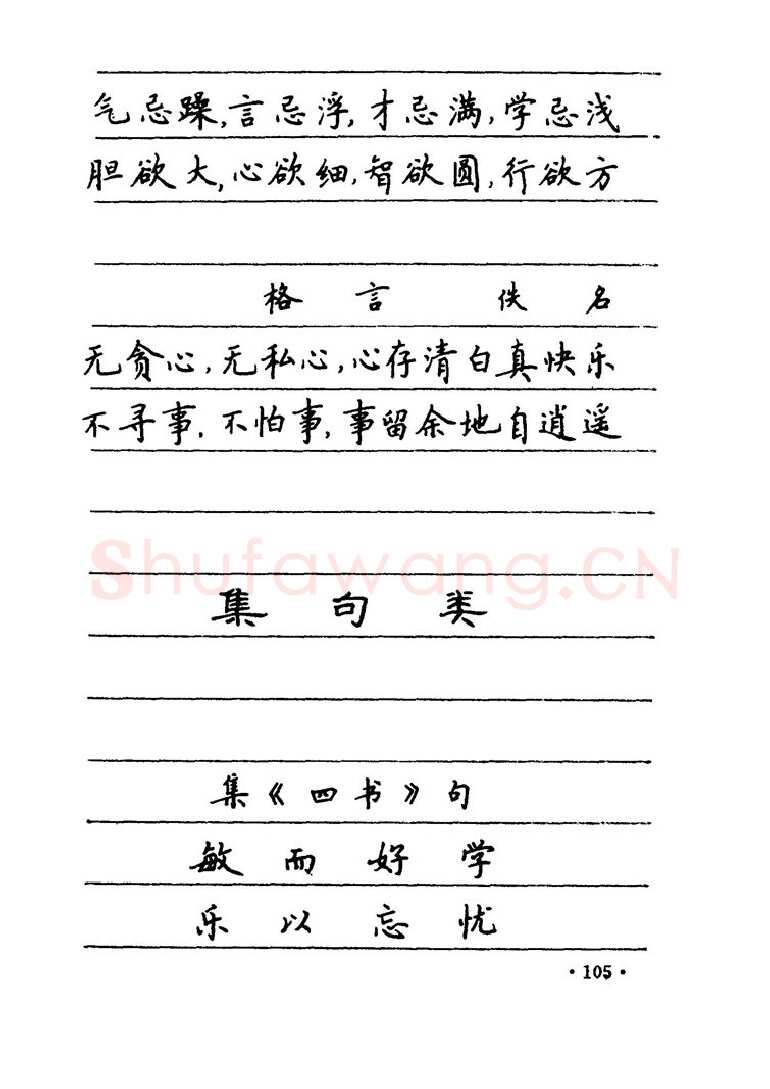 气忌躁,言忌浮,才忌满,学忌浅
胆欲大,心欲细,智欲圆,行欲方
格 言 佚 名
无贪心,无私心,心存清白真快乐
不寻事,不怕事,事留余地自逍遥
shufawang.CN
集 句 类
集《四书》句
敏 而 好 学
乐 以 忘 忧
·105·